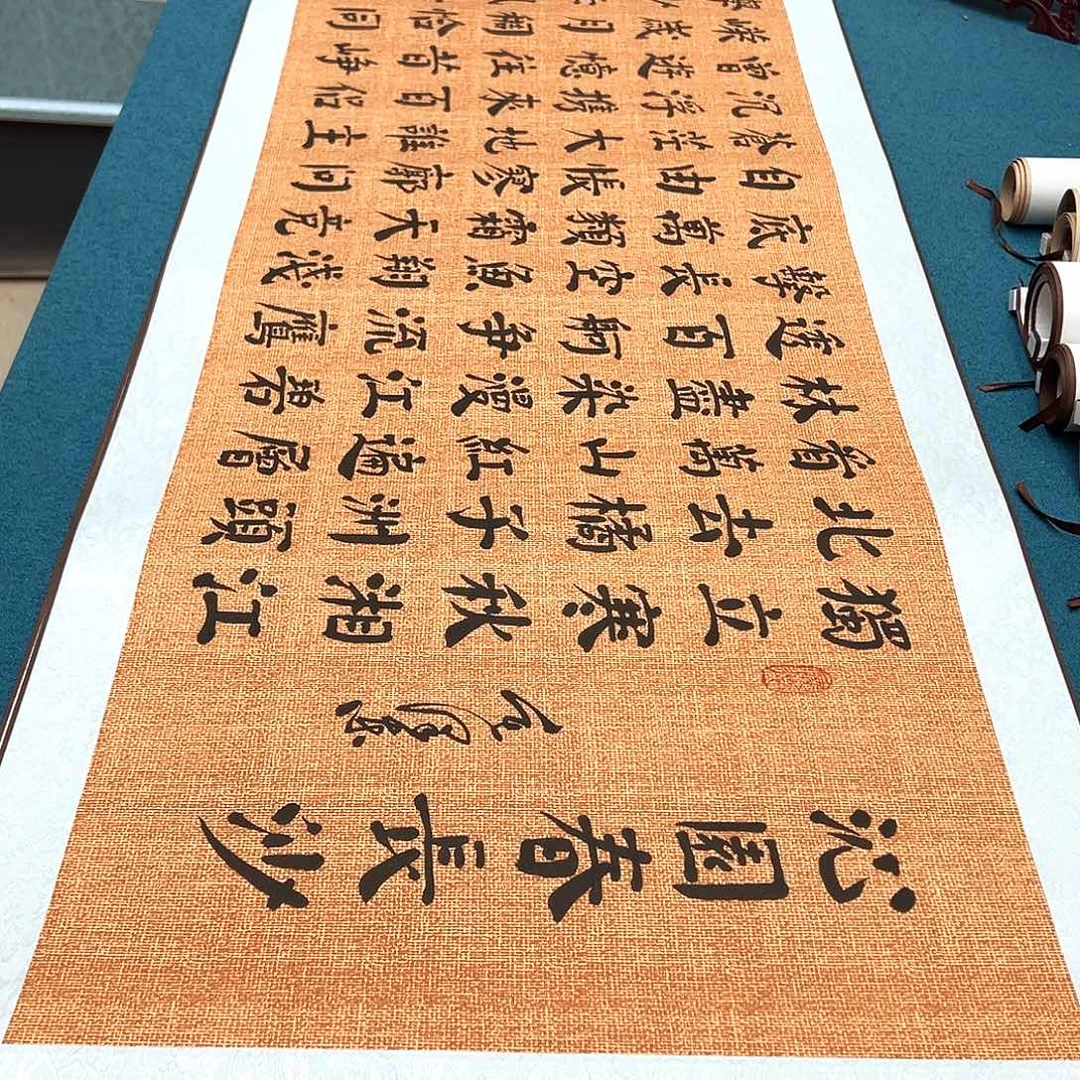 沁園春長沙
毛澤東
獨立寒秋湘江
北去橘子洲頭
看萬山紅遍層
林盡染漫江碧
透百舸爭流鷹
擊長空魚翔淺
底萬類霜天竞
自由悵寥廓問
蒼茫大地誰主
沉浮携來百侶
曾遊憶往昔崢
嶸歲月稠恰同